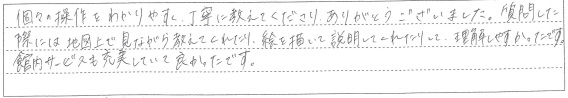 個々の操作をわかりやすく、丁寧に教えてくださり、ありがとうございました。質問した
際には地図上で見ながら教えてくれたり、絵を描いて説明してくれたりして、理解しやすかったです。
館内サービスも充実していて良かったです。